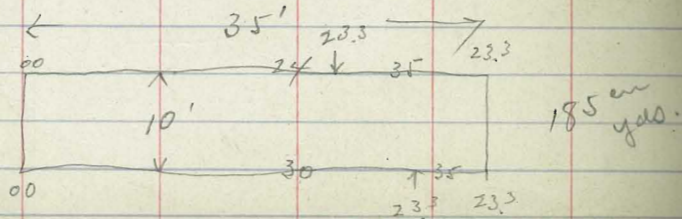 35'
23.3
23.3
00
24
35
10'
185 cu
yds.
30
35
00
23.3
23.3